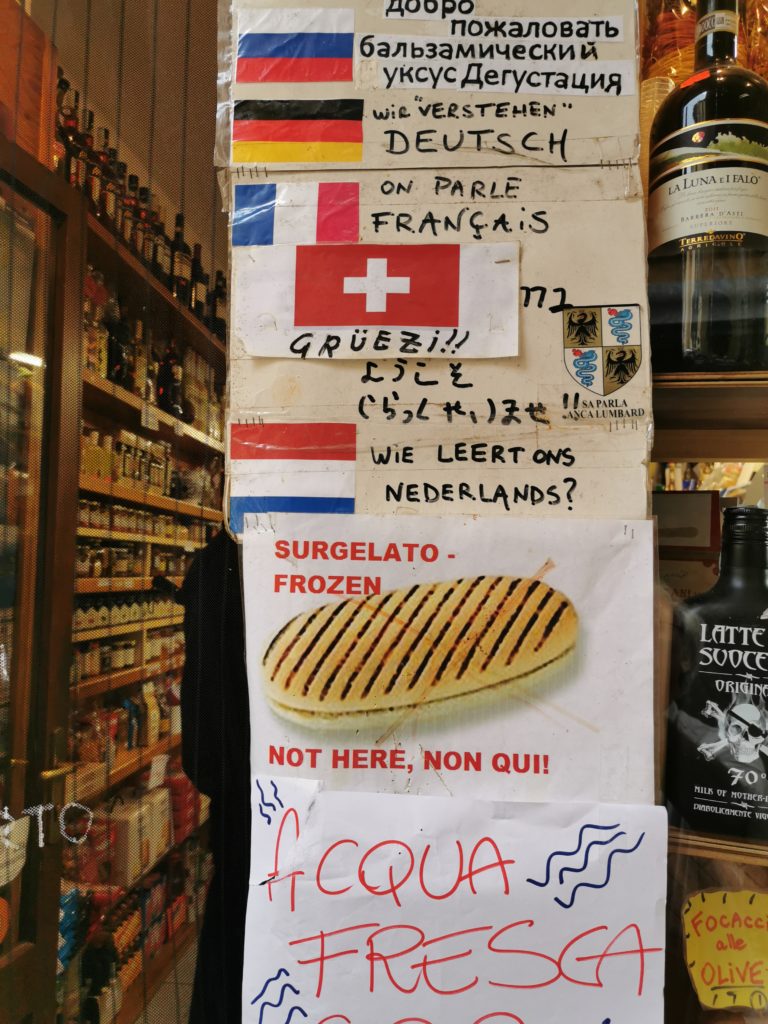 добро
пожаловать
бальзамический
уксус Дегустация
WIR "VERSTEHEN"
DEUTSCH
ON PARLE
FRANÇAIS
GRÜEZI!!
ようこそ
いらっしゃいませ!!
SA PARLA
ANCA LUMBARD
WIE LEERT ONS
NEDERLANDS?
SURGELATO -
FROZEN
NOT HERE, NON QUI!
ACQUA
FRESCA
LA LUNA E I FALÒ
2011
BARBERA D'ASTI
SUPERIORE
TERREDAVINO
AGRICOLE
LATTE
SUOCE
ORIGIN
70°
MILK OF MOTHER-
DIABOLICAMENTE
FOCACCI
alle
OLIVE
RTO